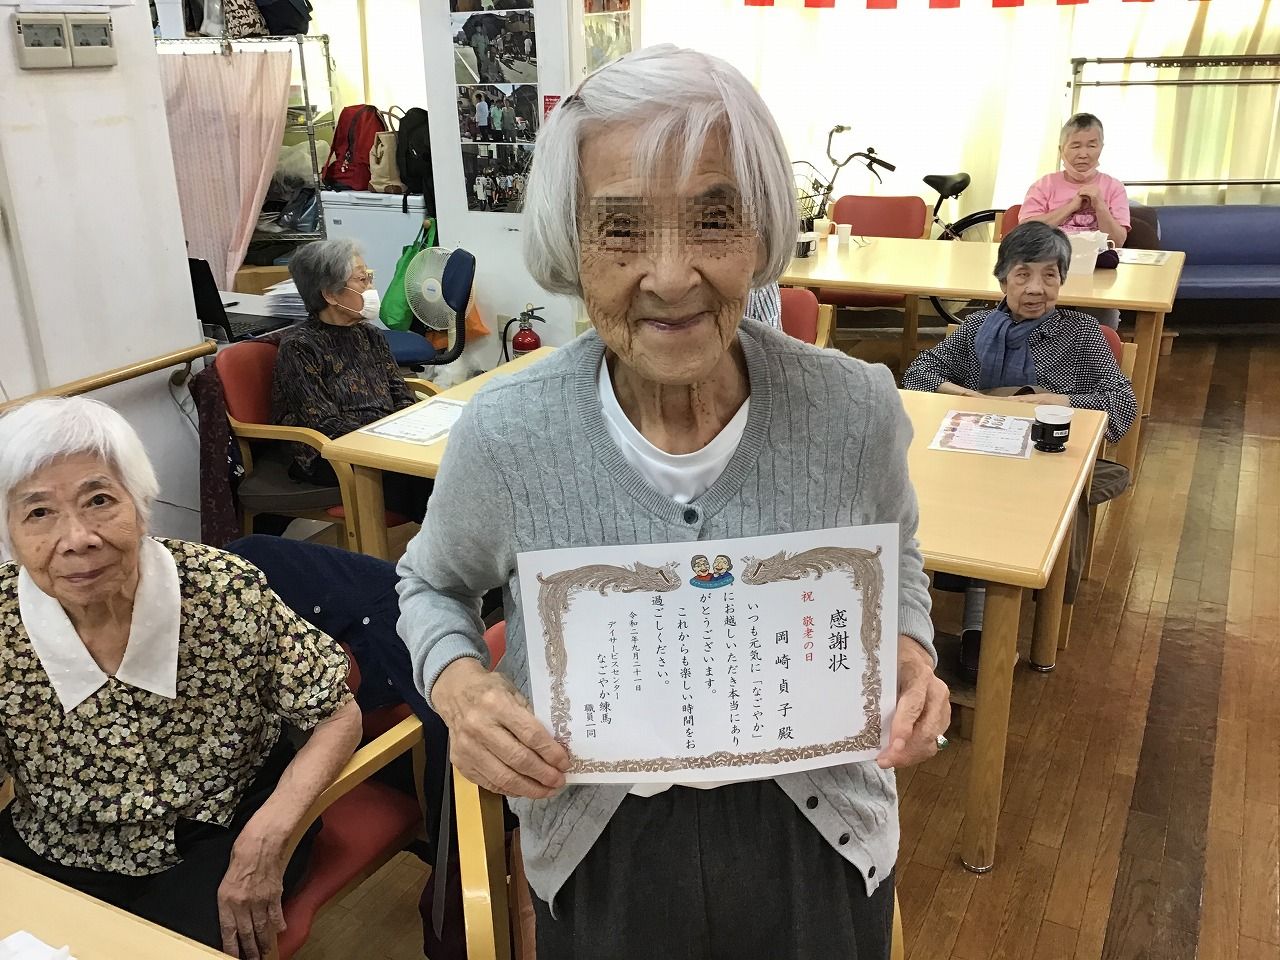 感謝状
祝 敬老の日
岡崎貞子殿
いつも元気に「なごやか」
にお越しいただき本当にあり
がとうございます。
これからも楽しい時間をお
過ごしください。
令和二年九月二十一日
デイサービスセンター
なごやか練馬
職員一同